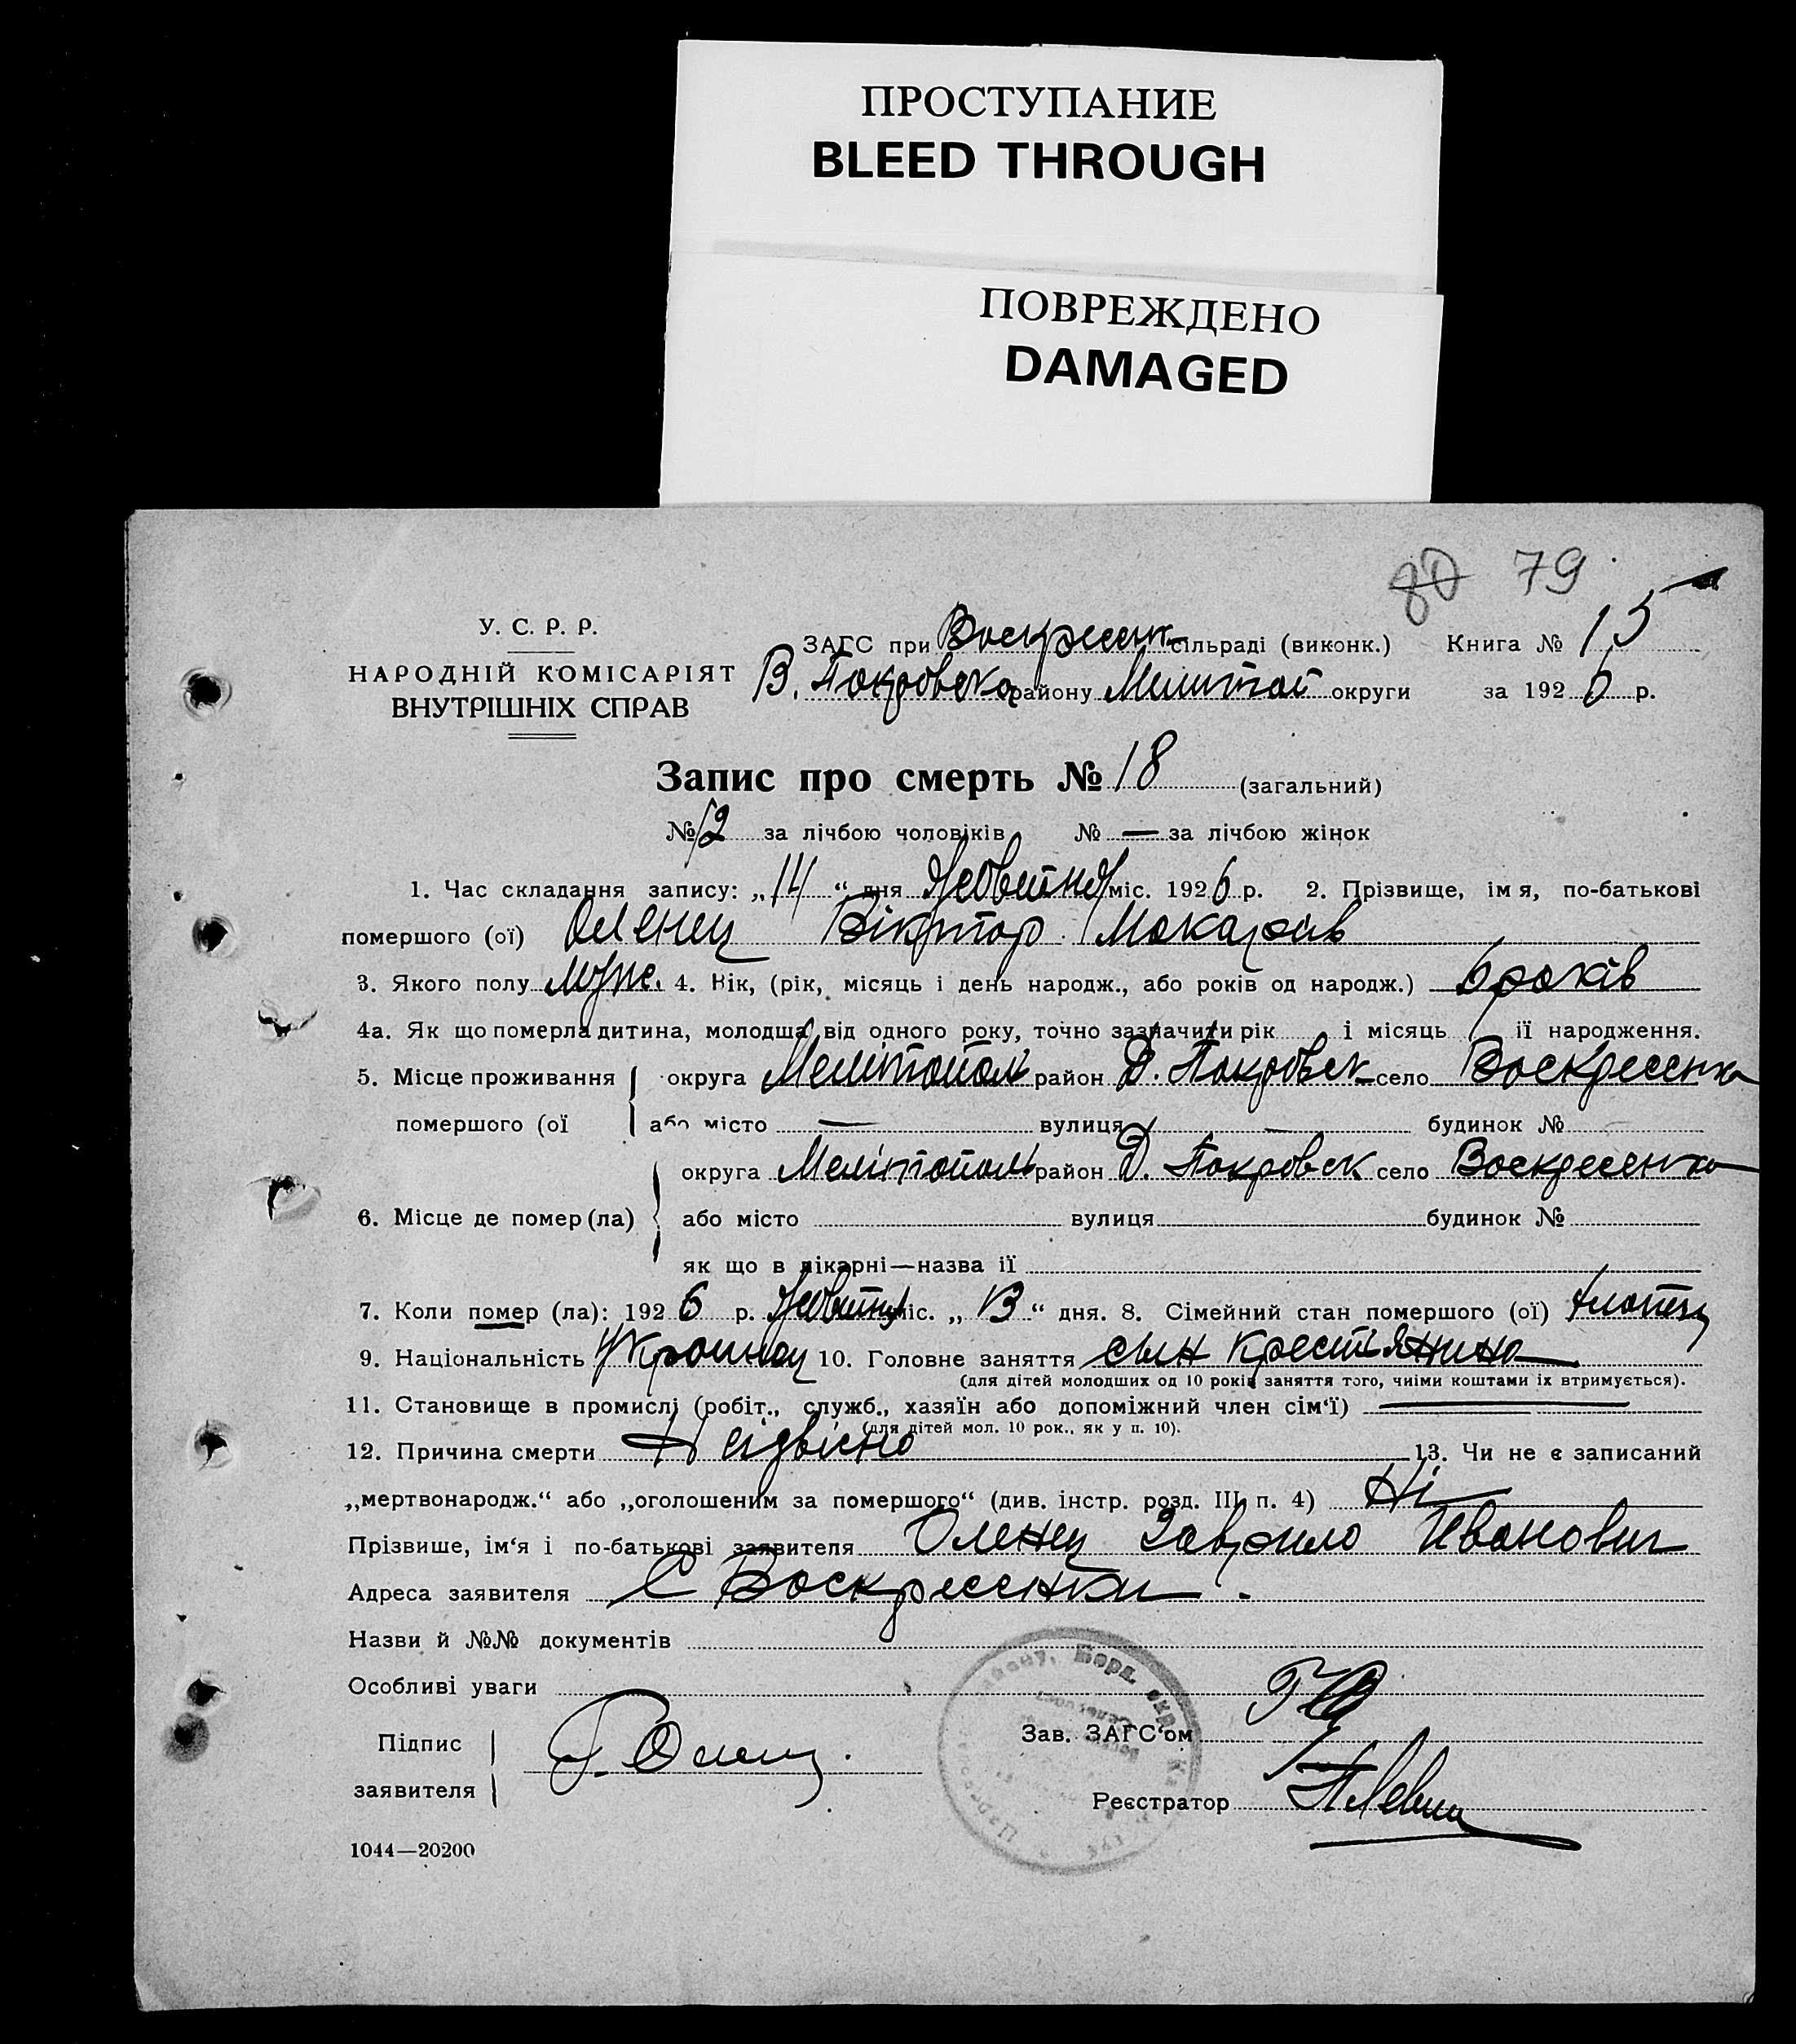 ПРОСТУПАНИЕ
BLEED THROUGH
ПОВРЕЖДЕНО
DAMAGED
80 79
У. С. Р. Р.
НАРОДНІЙ КОМІСАРІЯТ
ВНУТРІШНІХ СПРАВ
ЗАГС при Воскресенк сільраді (виконк.) Книга № 15
В. Покровськ району Мелитоп округи за 1926 р.
Запис про смерть № 18 (загальний)
№ 12 за лічбою чоловіків № — за лічбою жінок
1. Час складання запису: „14“ дня міс. 1926 р. 2. Прізвище, імя, по-батькові
помершого (ої) Оленец Віктор Макарів
3. Якого полу Муж. 4. Вік, (рік, місяць і день народж., або років од народж.) 6 років
4а. Як що померла дитина, молодша від одного року, точно зазначити рік і місяць її народження.
5. Місце проживання округа Мелітополь район В. Покровськ село Воскресенка
помершого (ої або місто — вулиця — будинок №
округа Мелітополь район В. Покровськ село Воскресенка
6. Місце де помер (ла) або місто вулиця будинок №
як що в лікарні—назва її
7. Коли помер (ла): 1926 р. міс. „13“ дня. 8. Сімейний стан помершого (ої) хлопець
9. Національність Украинец 10. Головне заняття сын крестьянина
(для дітей молодших од 10 років заняття того, чиїми коштами їх втримується).
11. Становище в промислі (робіт., служб., хазяїн або допоміжний член сім‘ї) —
(для дітей мол. 10 рок., як у п. 10).
12. Причина смерти Нeiзвiсно 13. Чи не є записаний
„мертвонародж.“ або „оголошеним за помершого“ (див. інстр. розд. III п. 4) Ні
Прізвише, ім‘я і по-батькові заявителя Оленец Гаврило Иванович
Адреса заявителя С Воскресенки
Назви й №№ документів
Особливі уваги
Підпис
заявителя Г. Оленец
Зав. ЗАГС‘ом
Реєстратор
1044—20200